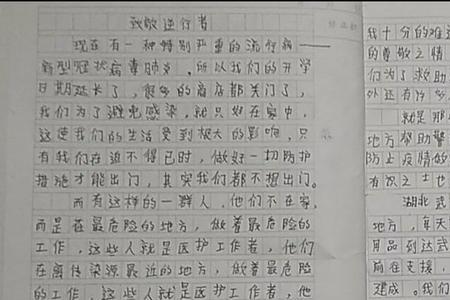 致敬逆行者
现在有一种特别严重的流行病——
新型冠状病毒肺炎。所以我们的开学
日期延长了，很多的商店都关门了，
我们为了避免感染，就只好在家中，
这使我们的生活受到极大的影响，只
有我们在迫不得已时，做好一切防护
措施才能出门，其实我们都不想出门。
而有这样的一群人，他们不在家，
而是在最危险的地方，做着最危险的
工作，这些人就是医护工作者，他们
在离传染源最近的地方，做着最危险
的工作，这些人就是医护工作者，他
我十分的难
的尊敬之情
们为了救助
外还有许多
就是那
地方帮助警
防止疫情做
有识之士也
湖北武
地方，每天
用品到达武
前往支援，
建成。我们